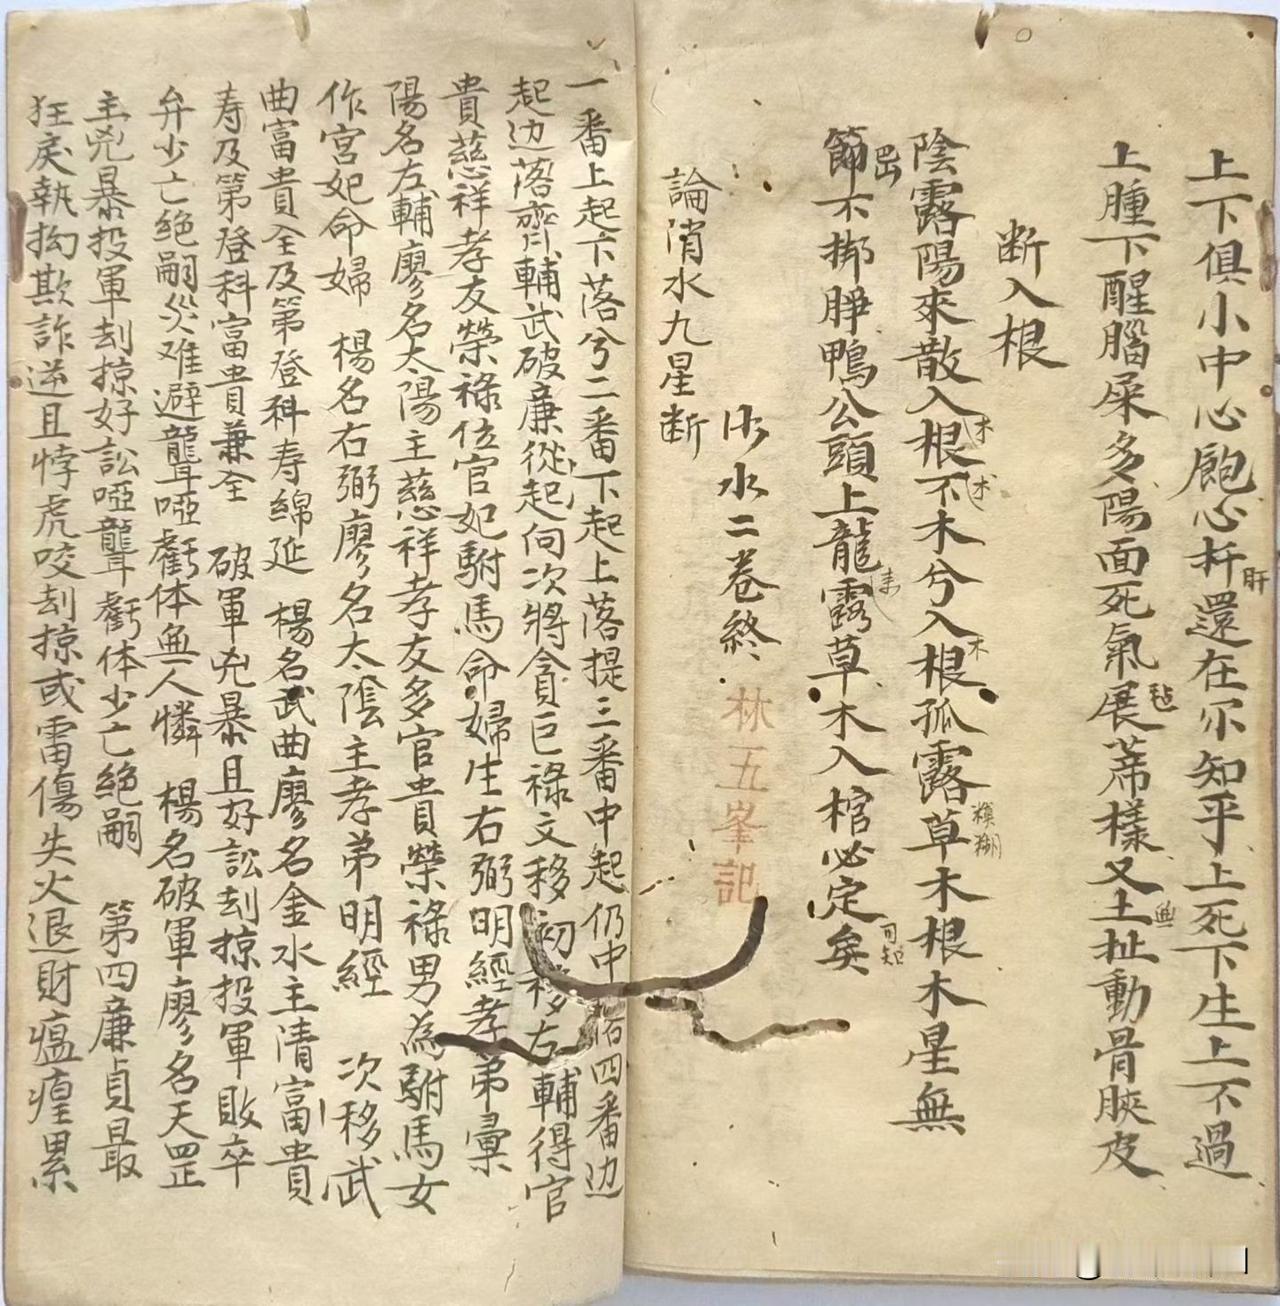 上下俱小中心飽心杆還在尔知乎上死下生上不過
肝
上腫下醒腦屎多陽面死氣展蓆樣又土扯動骨肤皮
毡
無
断入根
陰露陽來散入根不木兮入根孤露草木根木星無
木
术
木
模糊
節不挷脝鴨公頭上龍露草木入棺必定矣
出
来
可知
水二巻終
林五峯記
論消水九星断
一番上起下落兮二番下起上落提三番中起仍中四番边
起边落齊輔武破廉從起向次將貪巨祿文移初移左輔得官
貴慈祥孝友榮祿位官妃駙馬命婦生右弼明經孝弟彙
陽名左輔廖名太陽主慈祥孝友多官貴榮祿男為駙馬女
作宮妃命婦 楊名右弼廖名太陰主孝弟明經 次移武
曲富貴全及第登科寿綿延 楊名武曲廖名金水主清富貴
寿及第登科富貴兼全 破軍兇暴且好訟刦掠投軍敗卒
弁少亡絕嗣災难避聾啞虧体無人憐 楊名破軍廖名天罡
主兇暴投軍刦掠好訟啞聾虧体少亡絕嗣 第四廉貞最
狂戾執拗欺詐逆且悖虎咬刦掠或雷傷失火退財瘟瘽累